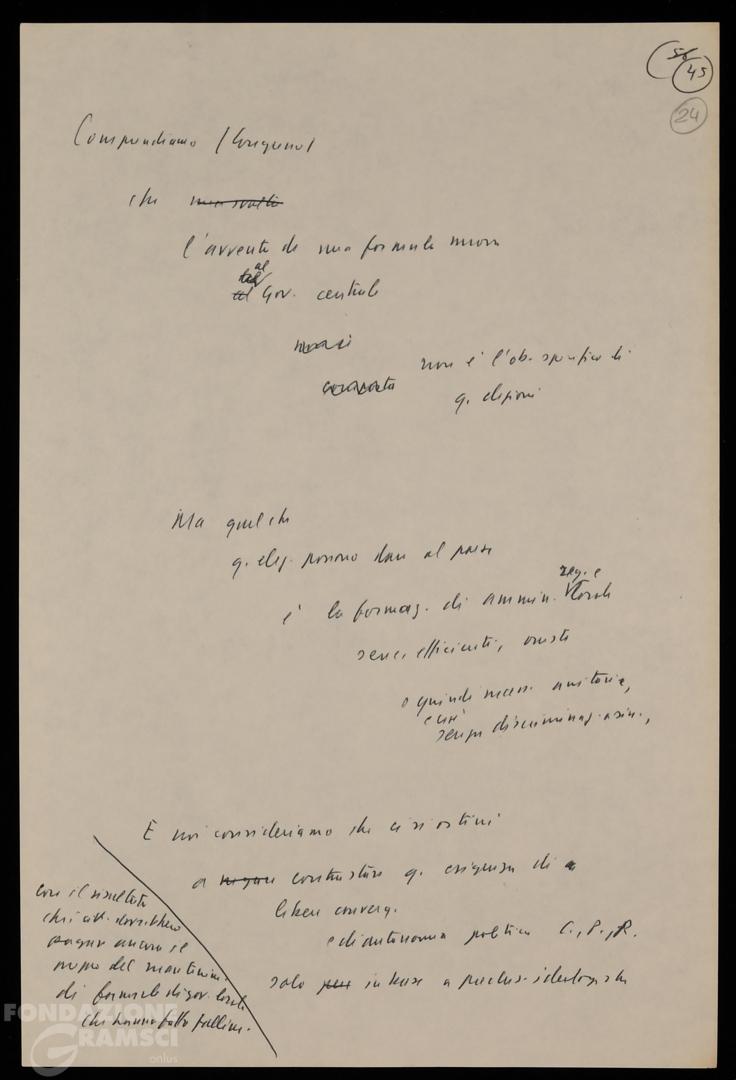 56
45
24
Comprendiamo
che
l'avvento di una formula nuova
al
Gov. centrale
non è l'ob. specifico di
q. elezioni
Ma quel che
q. elez. possono dare al paese
reg. e
è la formaz. di ammin. locali
serie, efficienti, oneste
e quindi necess. unitarie,
e cioè
senza discriminaz. a sin.,
E noi consideriamo che ci si ostini
a negare contrastare q. esigenza di
libere converg.
e di autonomia politica C., P., R.
solo in base a preclus. ideologiche
con il risultato
che i citt. dovrebbero
pagare ancora il
prezzo del mantenim.
di formule di gov. locale
che hanno fatto fallim.
FONDAZIONE
GRAMSCI
onlus